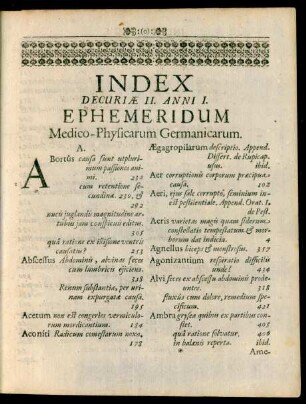 INDEX
DECURIÆ II. ANNI I.
EPHEMERIDUM
Medico-Physicarum Germanicarum.
A.
Abortus causa sunt utplurimum passiones animi. 292
cum retentione secundinæ. 250. &
292
nucis juglandis magnitudine artubus jam conspicuis editus.
305
quâ ratione ex illisione ventris causatus? 253
Abscessus Abdominis, alvinas feces cum lumbricis ejiciens.
318
Renum substantiæ, per urinam expurgatæ causa,
195
Acetum non est congeries vermiculorum mordicantium. 184
Aconiti Radicum comestarum noxa,
178
Ægagropilarum descriptio. Append.
Dissert. de Rupicap.
usu. ibid.
Aer corruptionis corporum præcipua
causa, 102
Aeri, ejusq; sole corrupto, seminium inest pestilentiale. Append. Orat. 1.
de Pest.
Aeris varietas magis quam siderum
constellatio tempestatum & morborum dat indicia. 4
Agnellus biceps & monstrosus. 357
Agonizantium respiratio difficilis
unde? 434
Alvi feces ex abscessu abdominis prodeuntes. 318
fluxus cum dolore, remedium specificum. 421
Ambra grysea quibus ex partibus constet. 405
quâ ratione solvatur, 408
in balænis reperta. ibid.
Ame-